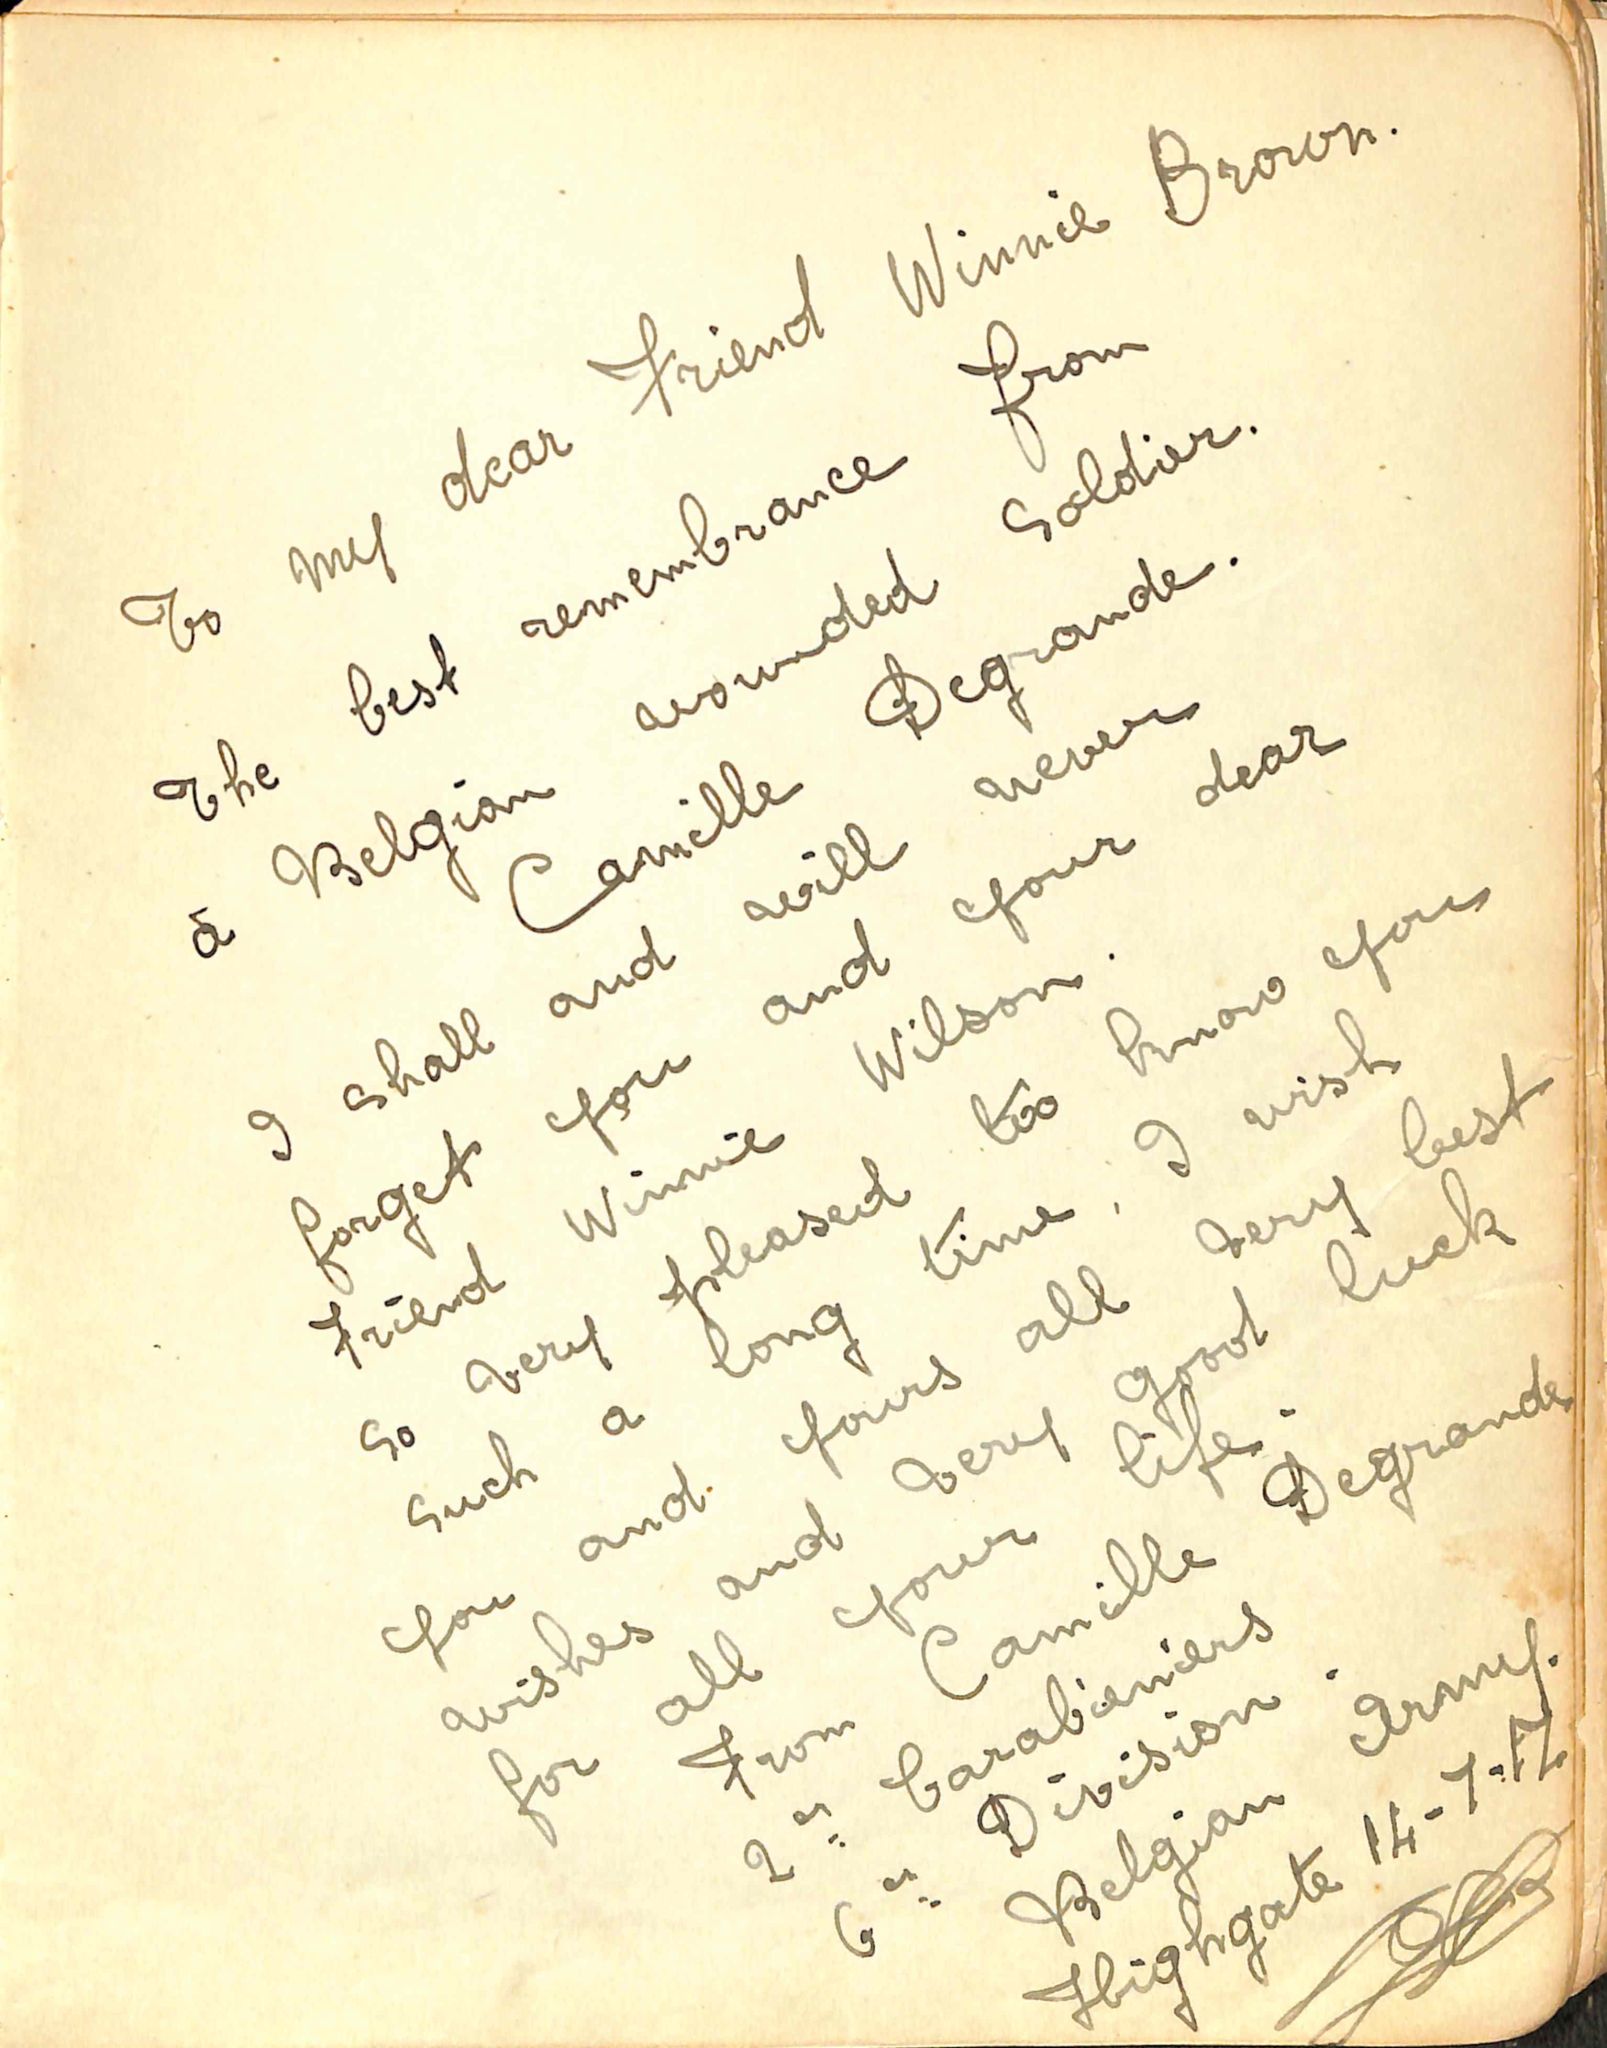 To my dear Friend Winnie Brown.
The best remembrance from
a Belgian wounded Soldier.
Camille Degrande.
I shall and will never
forget you and your dear
Friend Winnie Wilson.
So very pleased to know you
such a long time. I wish
you and yours all very best
wishes and very good luck
for all your life.
From Camille Degrande
2e Carabieniers
6e Division.
Belgian Army.
Highgate 14-7-17